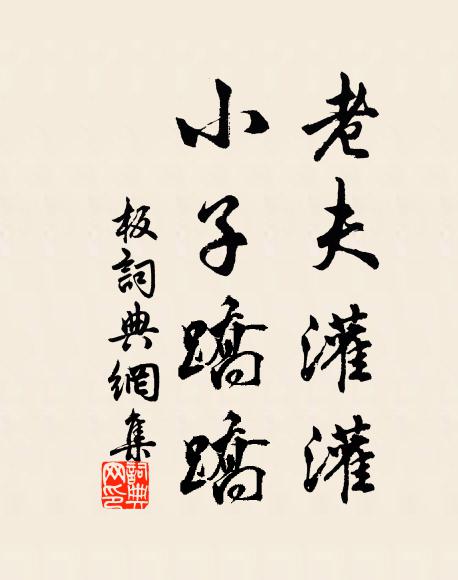 老夫灌灌
小子蹻蹻
板詞典網集
詞典网印